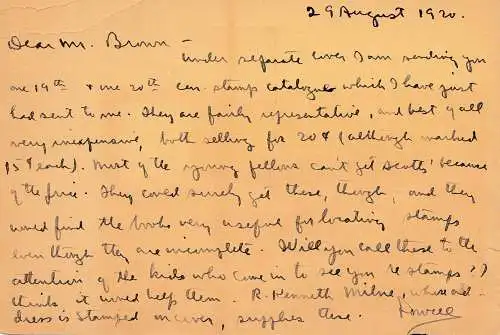 29 August 1920.
Dear Mr. Brown -
Under separate cover I am sending you
one 19th & one 20th cen. stamps catalogue which I have just
had sent to me. They are fairly representative, and best of all
very inexpensive, both selling for 20¢ (although marked
15¢ each). Most of the young fellows can't get Scotts' because
of the price. They could surely get these, though, and they
would find the books very useful for locating stamps
even though they are incomplete. Will you call these to the
attention of the kids who come in to see you re stamps? I
think it would help them. R. Kenneth Milne, whose ad-
dress is stamped on cover, supplies these.